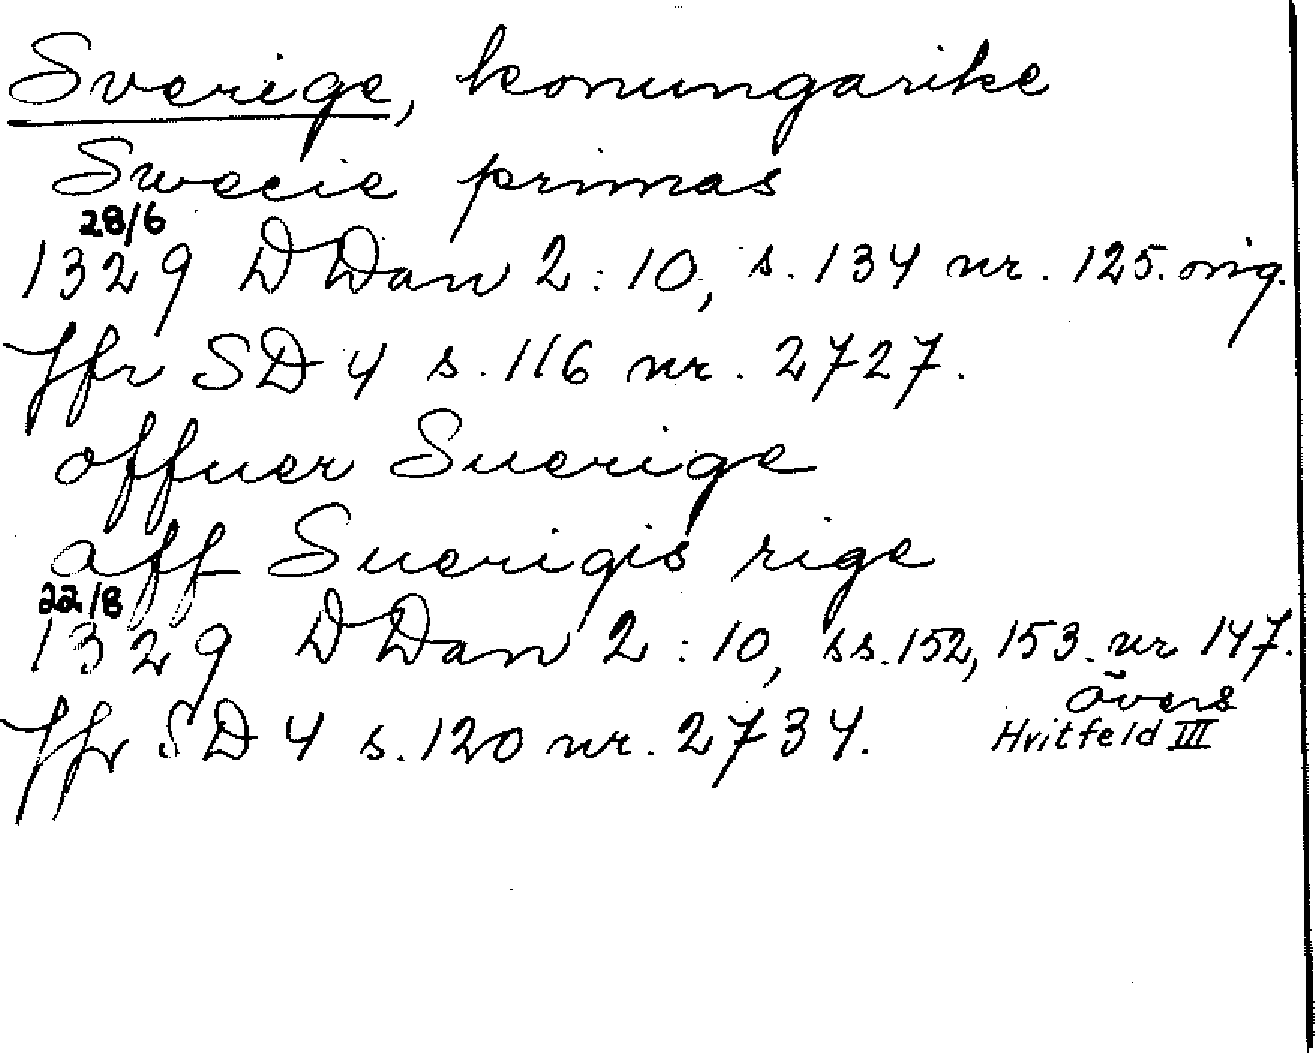 Sverige, konungarike
Swecie primas
28/6
1329 DDan 2:10, s. 134 nr. 125. orig.
Jfr SD 4 s. 116 nr. 2727.
offuer Suerige
aff Suerigis rige
22/8
1329 DDan 2:10, ss. 152, 153. nr 147.
övers
Jfr SD 4 s. 120 nr. 2734. Hvitfeld III